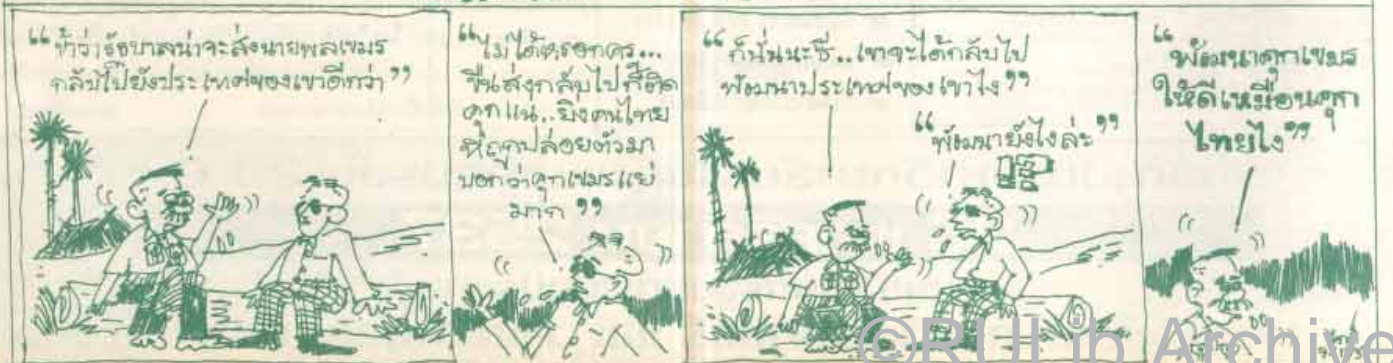 “ข้าว่ารัฐบาลน่าจะส่งนายพลเขมร
กลับไปยังประเทศของเขาดีกว่า”
“ไม่ได้หรอกคร...
ขืนส่งกลับไปก็ติด
คุกแน่..ยิ่งคนไทย
ที่ถูกปล่อยตัวมา
บอกว่าคุกเขมรแย่
มาก”
“ก็นั่นนะซี..เขาจะได้กลับไป
พัฒนาประเทศของเขาไง”
“พัฒนายังไงล่ะ”
“พัฒนาคุกเขมร
ให้ดีเหมือนคุก
ไทยไง”
©RULib Archive